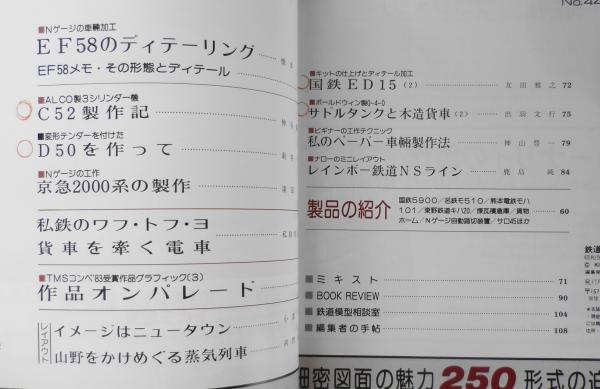 ■Nゲージの車輛加工
EF58のディテーリング
EF58メモ・その形態とディテール
■ALCO製3シリンダー機
C52製作記
■変形テンダーを付けた
D50を作って
■Nゲージの工作
京急2000系の製作
私鉄のワフ・トフ・ヨ
貨車を牽く電車
■TMSコンペ'83受賞作品グラフィック(3)
作品オンパレード
レイアウト
イメージはニュータウン
山野をかけめぐる蒸気列車
No.44
■キットの仕上げとディテール加工
国鉄ED15(2) 友田雅之 72
■ボールドウィン製0-4-0
サドルタンクと木造貨車(2) 出羽文行 75
■ビギナーの工作テクニック
私のペーパー車輛製作法 神山豊一 79
■ナローのミニレイアウト
レインボー鉄道NSライン 鹿島 純 84
製品の紹介
国鉄5900/名鉄モ510/熊本電鉄モハ
101/東野鉄道キハ20/煉瓦積倉庫/貨物
ホーム/Nゲージ自動踏切装置/サロ45ほか
60
■ミキスト 71
■BOOK REVIEW 90
■鉄道模型相談室 104
■編集者の手帖 108
細密図面の魅力250形式の